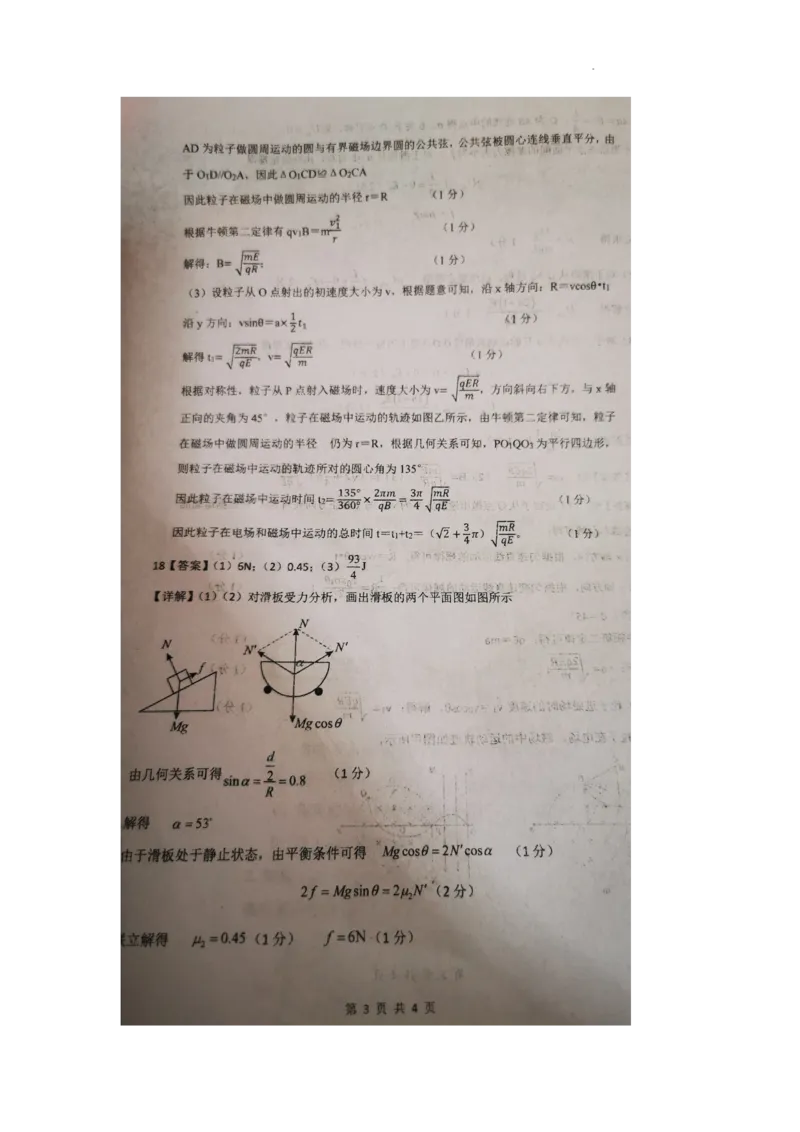 AD为粒子做圆周运动的圆与有界磁场边界圆的公共弦，公共弦被圆心连线垂直平分，由
于 O₁D//O₂A，因此ΔO₁CD≌ΔO₂CA
因此粒子在磁场中做圆周运动的半径 r＝R （1 分）
根据牛顿第二定律有 qv₁B＝m v₁²/r （1 分）
解得：B＝√(mE/qR)；（1 分）
（3）设粒子从 O 点射出的初速度大小为 v，根据题意可知，沿 x 轴方向：R＝vcosθ•t₁
沿 y 方向：vsinθ＝a×1/2 t₁ （1 分）
解得 t₁＝√(2mR/qE)，v＝√(qER/m) （1 分）
根据对称性，粒子从 P 点射入磁场时，速度大小为 v＝√(qER/m)，方向斜向右下方，与 x 轴
正向的夹角为 45°，粒子在磁场中运动的轨迹如图乙所示，由牛顿第二定律可知，粒子
在磁场中做圆周运动的半径 仍为 r＝R，根据几何关系可知，PO₁QO₃ 为平行四边形，
则粒子在磁场中运动的轨迹所对的圆心角为 135°
因此粒子在磁场中运动时间 t₂＝135°/360°×2πm/qB＝3π/4 √(mR/qE) （1 分）
因此粒子在电场和磁场中运动的总时间 t＝t₁+t₂＝（√2+3/4π）√(mR/qE)。 （1 分）
18【答案】（1）6N；（2）0.45；（3）93/4 J
【详解】（1）（2）对滑板受力分析，画出滑板的两个平面图如图所示
N f Mg
N N′ N′ α Mgcosθ
由几何关系可得 sinα=(d/2)/R=0.8 （1 分）
解得 α=53°
由于滑板处于静止状态，由平衡条件可得 Mgcosθ=2N′cosα （1 分）
2f=Mgsinθ=2μ₂N′（2 分）
立解得 μ₂=0.45（1 分） f=6N（1 分）
第 3 页 共 4 页